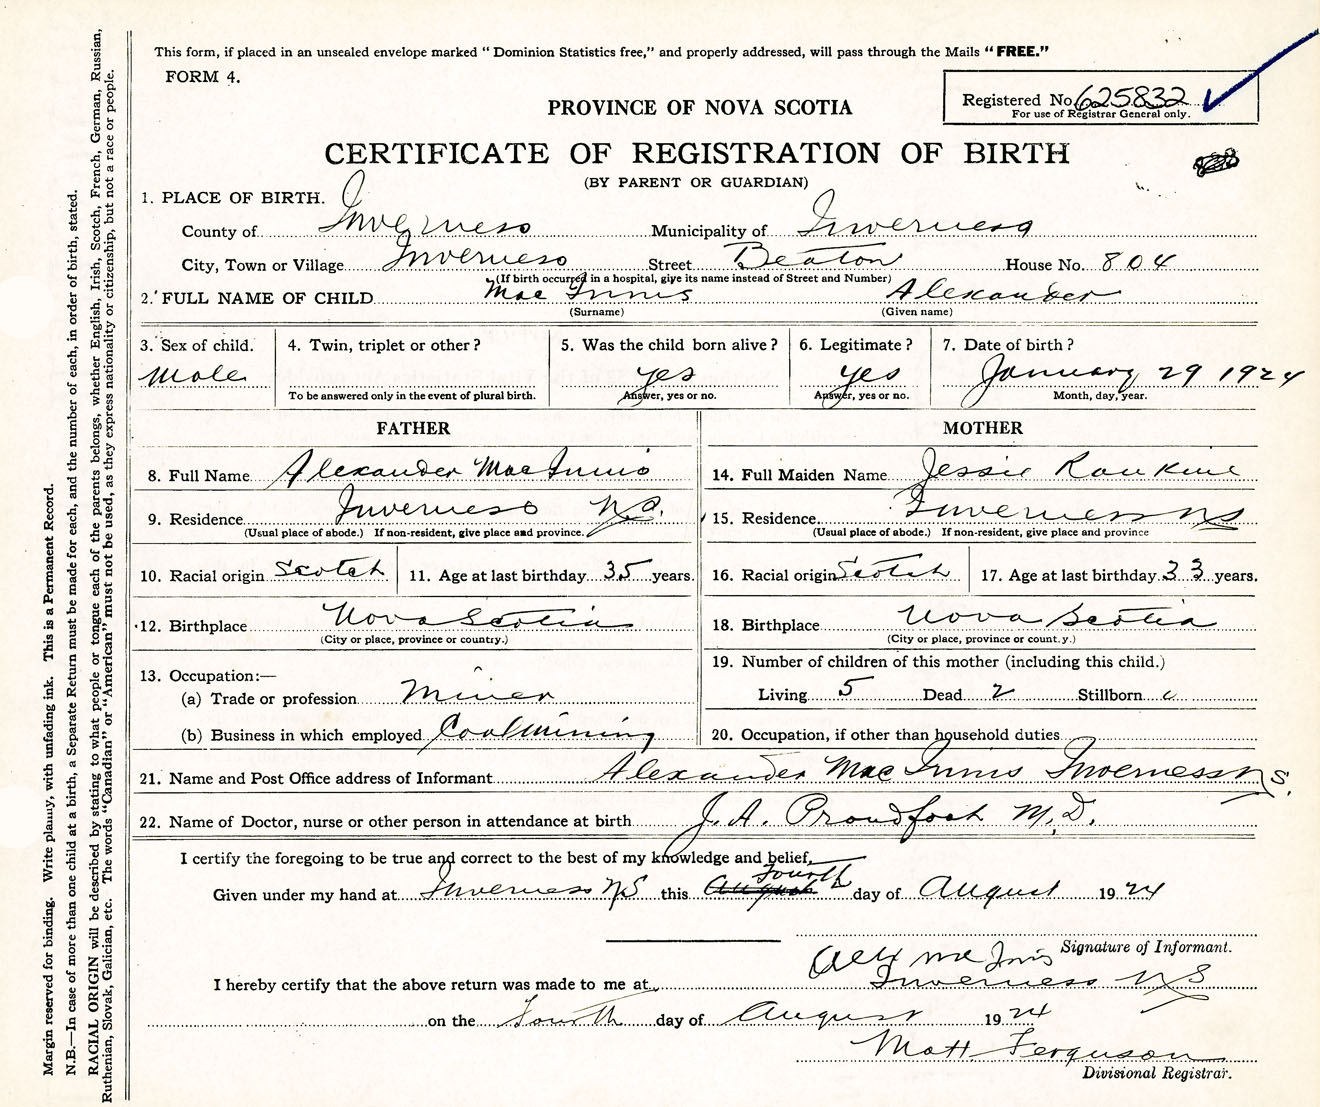 This form, if placed in an unsealed envelope marked “Dominion Statistics free,” and properly addressed, will pass through the Mails “FREE.”
FORM 4.
Registered No. 625832
For use of Registrar General only.
PROVINCE OF NOVA SCOTIA
CERTIFICATE OF REGISTRATION OF BIRTH
(BY PARENT OR GUARDIAN)
1. PLACE OF BIRTH.
County of Inverness Municipality of Inverness
City, Town or Village Inverness Street Beaton House No. 804
(If birth occurred in a hospital, give its name instead of Street and Number)
2. FULL NAME OF CHILD Mac Innis Alexander
(Surname) (Given name)
3. Sex of child. 4. Twin, triplet or other? 5. Was the child born alive? 6. Legitimate? 7. Date of birth?
Male yes yes January 29 1924
To be answered only in the event of plural birth. Answer, yes or no. Answer, yes or no. Month, day, year.
FATHER MOTHER
8. Full Name Alexander Mac Innis 14. Full Maiden Name Jessie Rankine
9. Residence Inverness N.S. 15. Residence Inverness NS
(Usual place of abode.) If non-resident, give place and province. (Usual place of abode.) If non-resident, give place and province
10. Racial origin Scotch 11. Age at last birthday 35 years. 16. Racial origin Scotch 17. Age at last birthday 33 years.
12. Birthplace Nova Scotia 18. Birthplace Nova Scotia
(City or place, province or country.) (City or place, province or count.y.)
13. Occupation:— 19. Number of children of this mother (including this child.)
(a) Trade or profession Miner Living 5 Dead 2 Stillborn
(b) Business in which employed Coal Mining 20. Occupation, if other than household duties
21. Name and Post Office address of Informant Alexander Mac Innis Inverness N.S.
22. Name of Doctor, nurse or other person in attendance at birth J. A. Proudfoot M.D.
I certify the foregoing to be true and correct to the best of my knowledge and belief,
Given under my hand at Inverness NS this August Fourth day of August 1924
Signature of Informant.
Alex Mc Inis
I hereby certify that the above return was made to me at Inverness NS
on the Fourth day of August 1924
Matt. Ferguson
Divisional Registrar.
Margin reserved for binding. Write plainly, with unfading ink. This is a Permanent Record.
N.B.—In case of more than one child at a birth, a Separate Return must be made for each, and the number of each, in order of birth, stated.
RACIAL ORIGIN will be described by stating to what people or tongue each of the parents belongs, whether English, Irish, Scotch, French, German, Russian,
Ruthenian, Slovak, Galician, etc. The words “Canadian” or “American” must not be used, as they express nationality or citizenship, but not a race or people.